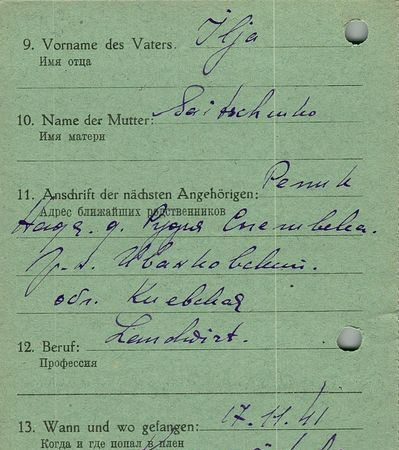 9. Vorname des Vaters. Ilja
Имя отца
10. Name der Mutter: Saitschenko
Имя матери
11. Anschrift der nächsten Angehörigen:
Адрес ближайших родственников
Надя. д. Рудня
р-н. Иванковский.
обл. Киевская
12. Beruf: Landwirt.
Профессия
13. Wann und wo gefangen: 17.11.41
Когда и где попал в плен